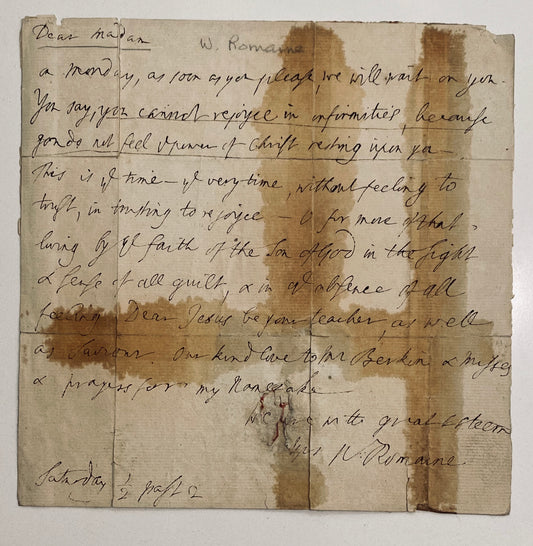 Dear Madam
W. Romaine
on Monday, as soon as you please, we will wait on you.
You say, you cannot rejoyce in infirmities, because
you do not feel yͤ power of Christ resting upon you —
This is yͤ time — yͤ very time, without feeling to
trust, in trusting to rejoyce — O for more of that
living by yͤ faith of the Son of God in the sight
& sense of all guilt, & in yͤ absence of all
feeling. Dear Jesus be your teacher, as well
as Saviour. Our kind love to Mr Berkin & Misses
& prayers for my Namesake
We are with great esteem
Yrs W. Romaine
Saturday ½ past 2